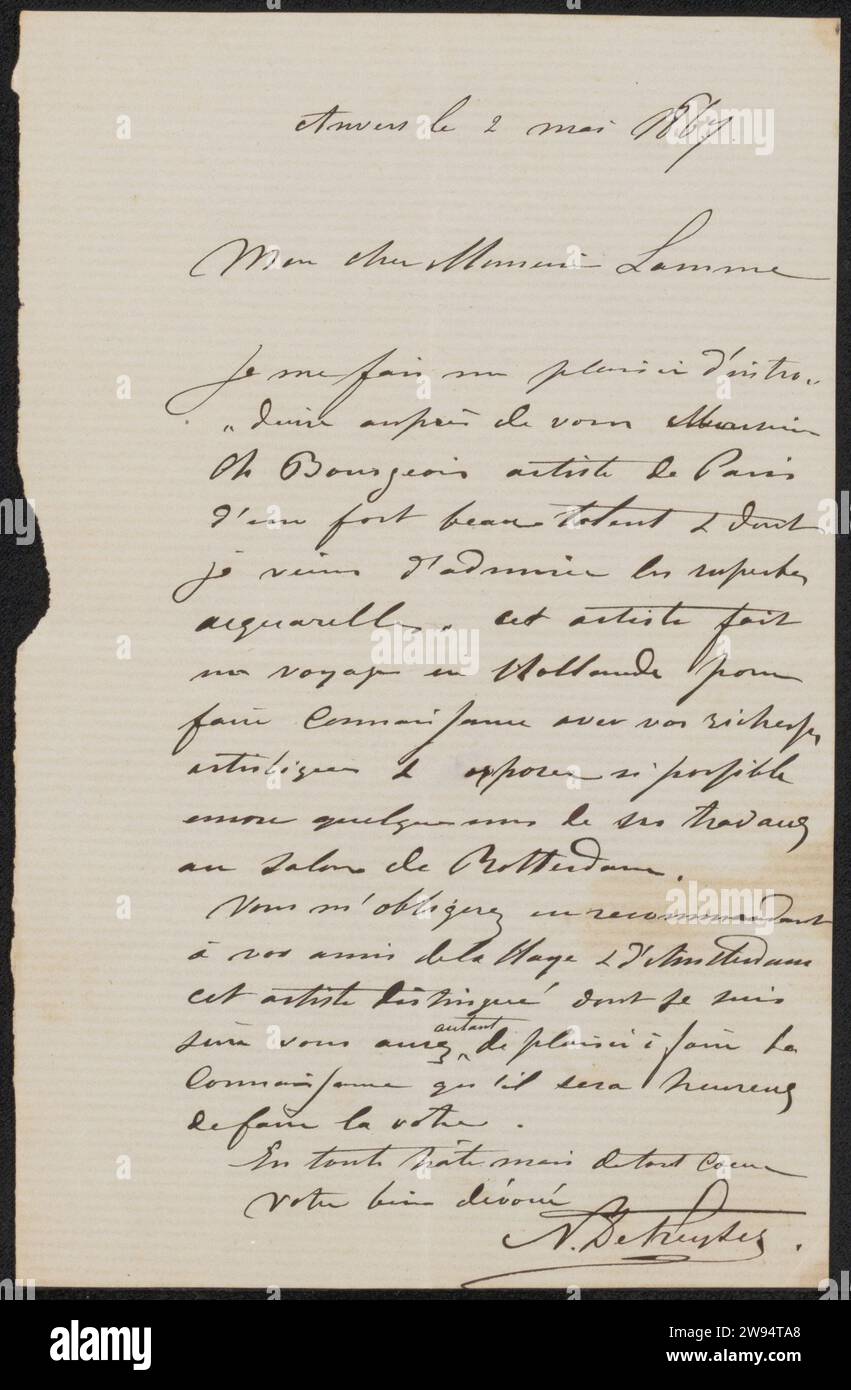 Anvers le 2 mai 1867.
Mon cher Monsieur Lamme
Je me fais un plaisir d'intro„
„duire auprès de vous Monsieur
Ch Bourgeois artiste de Paris
d'un fort beau talent & dont
je viens d'admirer les superbes
acquarelles. cet artiste fait
un voyage en Hollande pour
faire connaissance avec vos richesses
artistiques & exposer si possible
encore quelques uns de ses travaux
au salon de Rotterdam.
Vous m'obligerez en recommandant
à vos amis de la Haye & d'Amsterdam
cet artiste distingué dont je suis
sûre vous aurez autant de plaisir à faire la
connaissance qu'il sera heureux
de faire la votre.
En toute hâte mais de tout coeur
votre bien dévoué
N. De Keyser.
alamy
Image ID: 2W94TA8
www.alamy.com